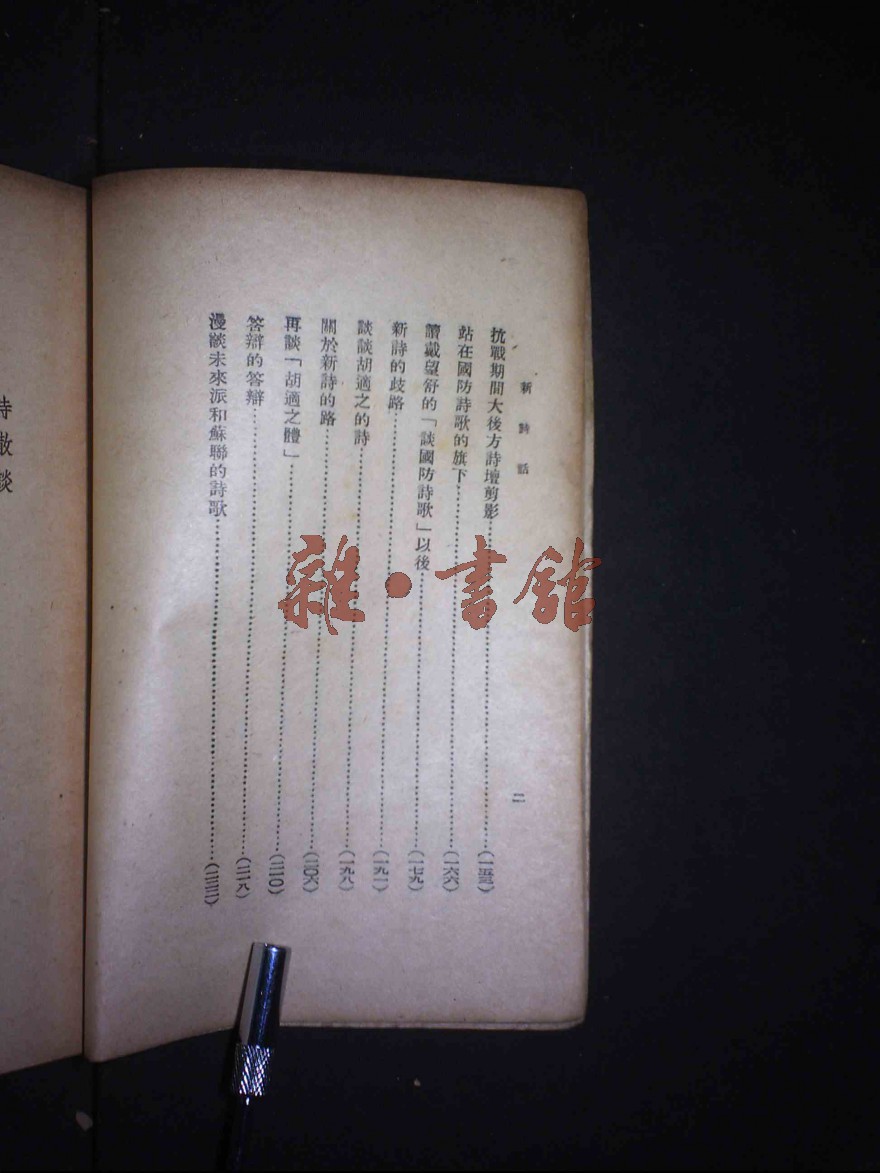 新詩話
二
抗戰期間大後方詩壇剪影……(一五三)
站在國防詩歌的旗下……(一六六)
讀戴望舒的「談國防詩歌」以後……(一七九)
新詩的歧路……(一九一)
談談胡適之的詩……(一九八)
關於新詩的路……(二〇六)
再談「胡適之體」……(二一〇)
答辯的答辯……(二一八)
漫談未來派和蘇聯的詩歌……
詩散談
雜·書館